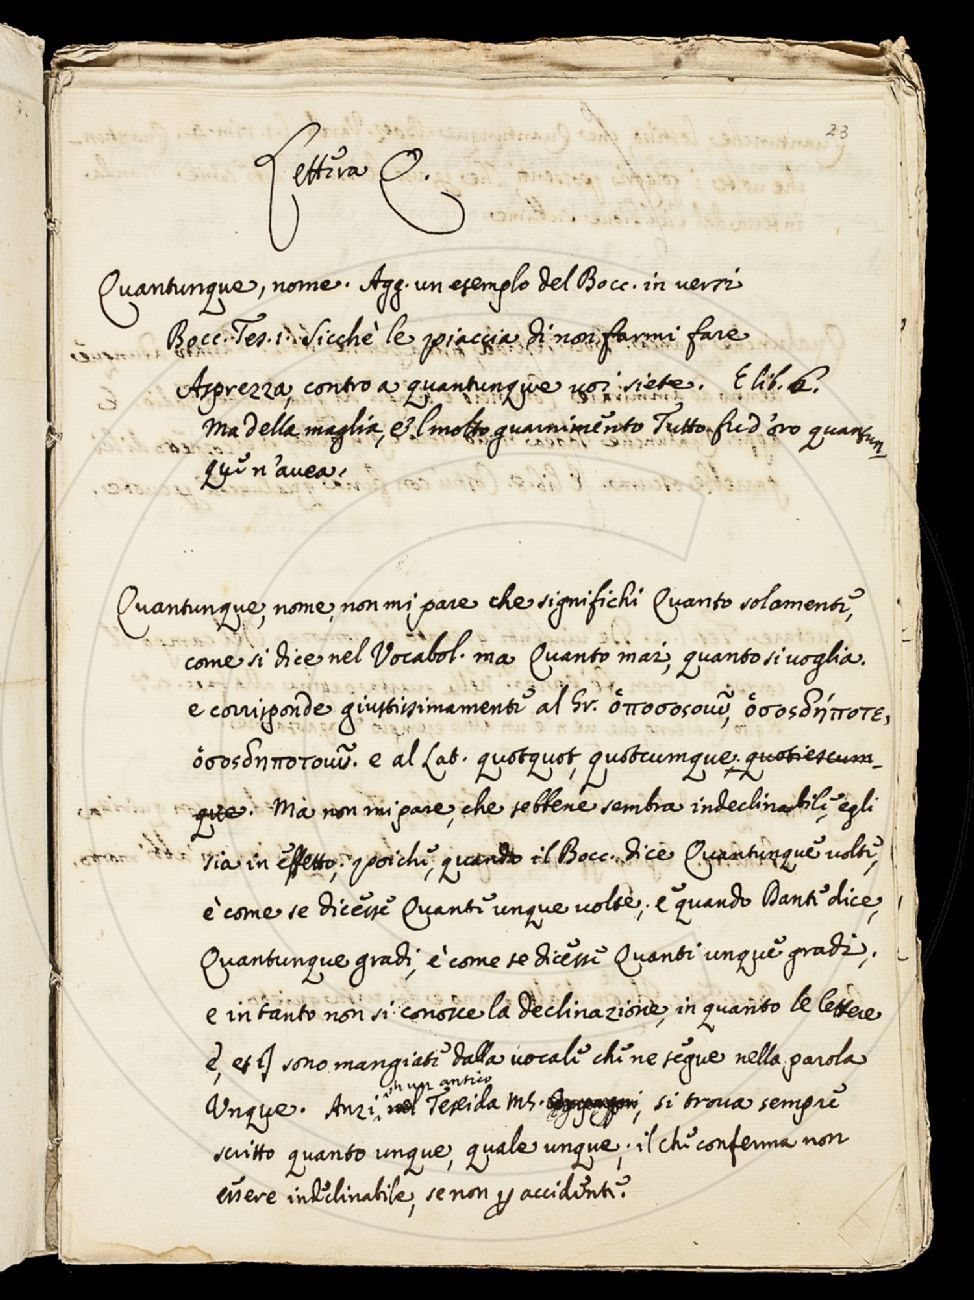 23
Lettera Q.
Quantunque, nome. Agg. un esemplo del Bocc. in versi
Bocc. Tes. 1. Sicchè le piaccia di non farmi fare
Asprezza, contro a quantunque voi siete. E lib. 6.
Ma della maglia, e'l molto guarnimento Tutto fu d'oro quantun-
que n'avea.
Quantunque, nome, non mi pare che significhi Quanto solamente,
come si dice nel Vocabol. ma Quanto mai, quanto si voglia.
e corrisponde giustissimamente al Gr. ὁποσοσοῦν, ὁσοσδήποτε,
ὁσοσδηποτοῦν. e al Lat. quotquot, quotcumque, quotiescum-
que. Ma non mi pare, che sebbene sembra indeclinabile, egli
sia in effetto; poichè, quando il Bocc. dice Quantunque volte,
è come se dicesse Quante unque volte; e quando Dante dice,
Quantunque gradi, è come se dicesse Quanti unque gradi;
e intanto non si conosce la declinazione, in quanto le lettere
E, et I, sono mangiate dalla vocale che ne segue nella parola
Unque. Anzi, in un antico nel Teseida MS. si trova sempre
scritto quanto unque, quale unque; il che conferma non
essere indeclinabile, se non p accidente.